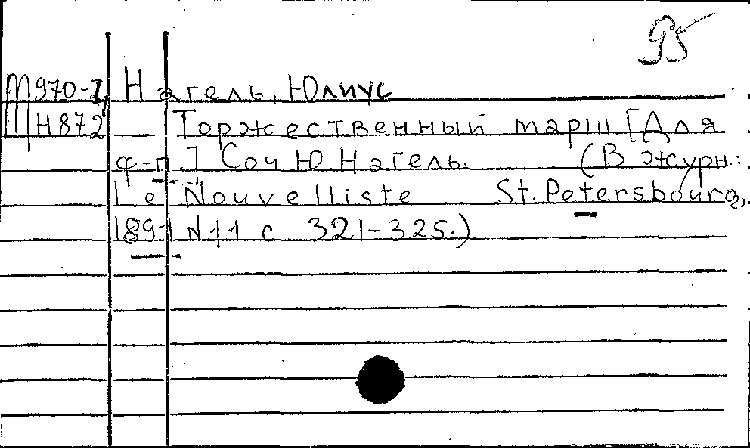 М970-I Нагель, Юлиус
Н872 Торжественный марш [Для
ф-п.] Соч Ю Нагель. (В журн.:
Le Nouvelliste St. Petersbourg,
1891 N 11 с 321-325.)